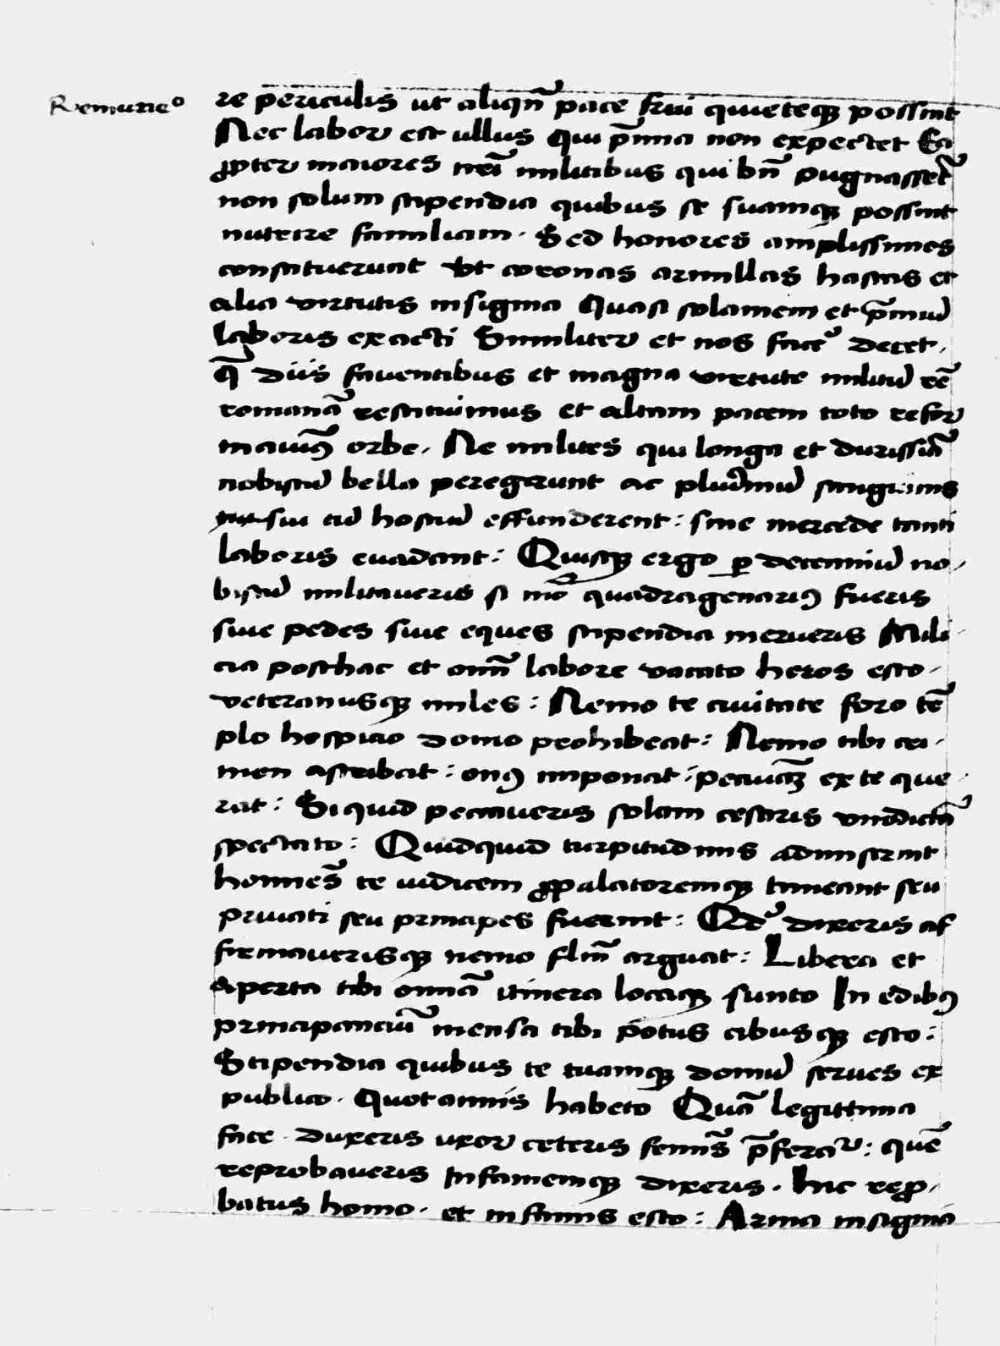 Remuneᵒ
re periculis ut aliqñ pace frui quieteqꝫ possint
Nec labor est ullus Qui p̃mia non expectet Ea
ꝓpter maiores nr̃i militibus qui bñ pugnasset̃
non solum stipendia quibus se suamqꝫ possint
nutrire familiam · Sed honores amplissimos
constituerunt Vt coronas armillas hastas et
alia virtutis insignia Quasi solamem et p̃miũ
laboris exacti Similiter et nos facẽ decet ·
q̃ diis faventibus et magna virtute militũ rẽ
romanã restituimus et altam pacem toto refor
mavimꝰ orbe · Ne milites qui longa et durissiã
nobiscũ bella peregerunt ac plurimũ sanguinis
sui cũ hostiũ effunderent : sine mercede tanti
laboris evadant : Quisqꝫ ergo ꝑ decenniũ no-
biscũ militaveris si mõ quadragenariꝰ fueris
sive pedes sive eques stipendia merueris Mili
cia posthac et omñ labore vacato heros esto ·
veteranusqꝫ miles : Nemo te civitate foro tẽ
plo hospicio domo prohibeat : Nemo tibi cri-
men ascribat : onꝰ imponat : pecuniã ex te que
rat : Si quid peccaveris solam cesaris vindictã
spectato : Quidquid turpitudinis admiserint
homines̃ te iudicem ꝓpalatoremqꝫ timeant seu
privati seu principes fuerint : Qd̃ dixeris af
firmaverisqꝫ nemo flm̃ arguat : Libera et
aperta tibi omñia itinera locaqꝫ sunto In edibꝰ
principanciũ mensa tibi potus cibusqꝫ esto :
Stipendia quibus te tuamqꝫ domũ serves ex
publico · Quot annis habeto Quã legittima
face · duxeris uxor ceteris femis̃ p̃feraʳ : quẽ
reprobaveris Infamemqꝫ dixeris · Hic repro-
batus homo · et infamis esto : Arma insignia